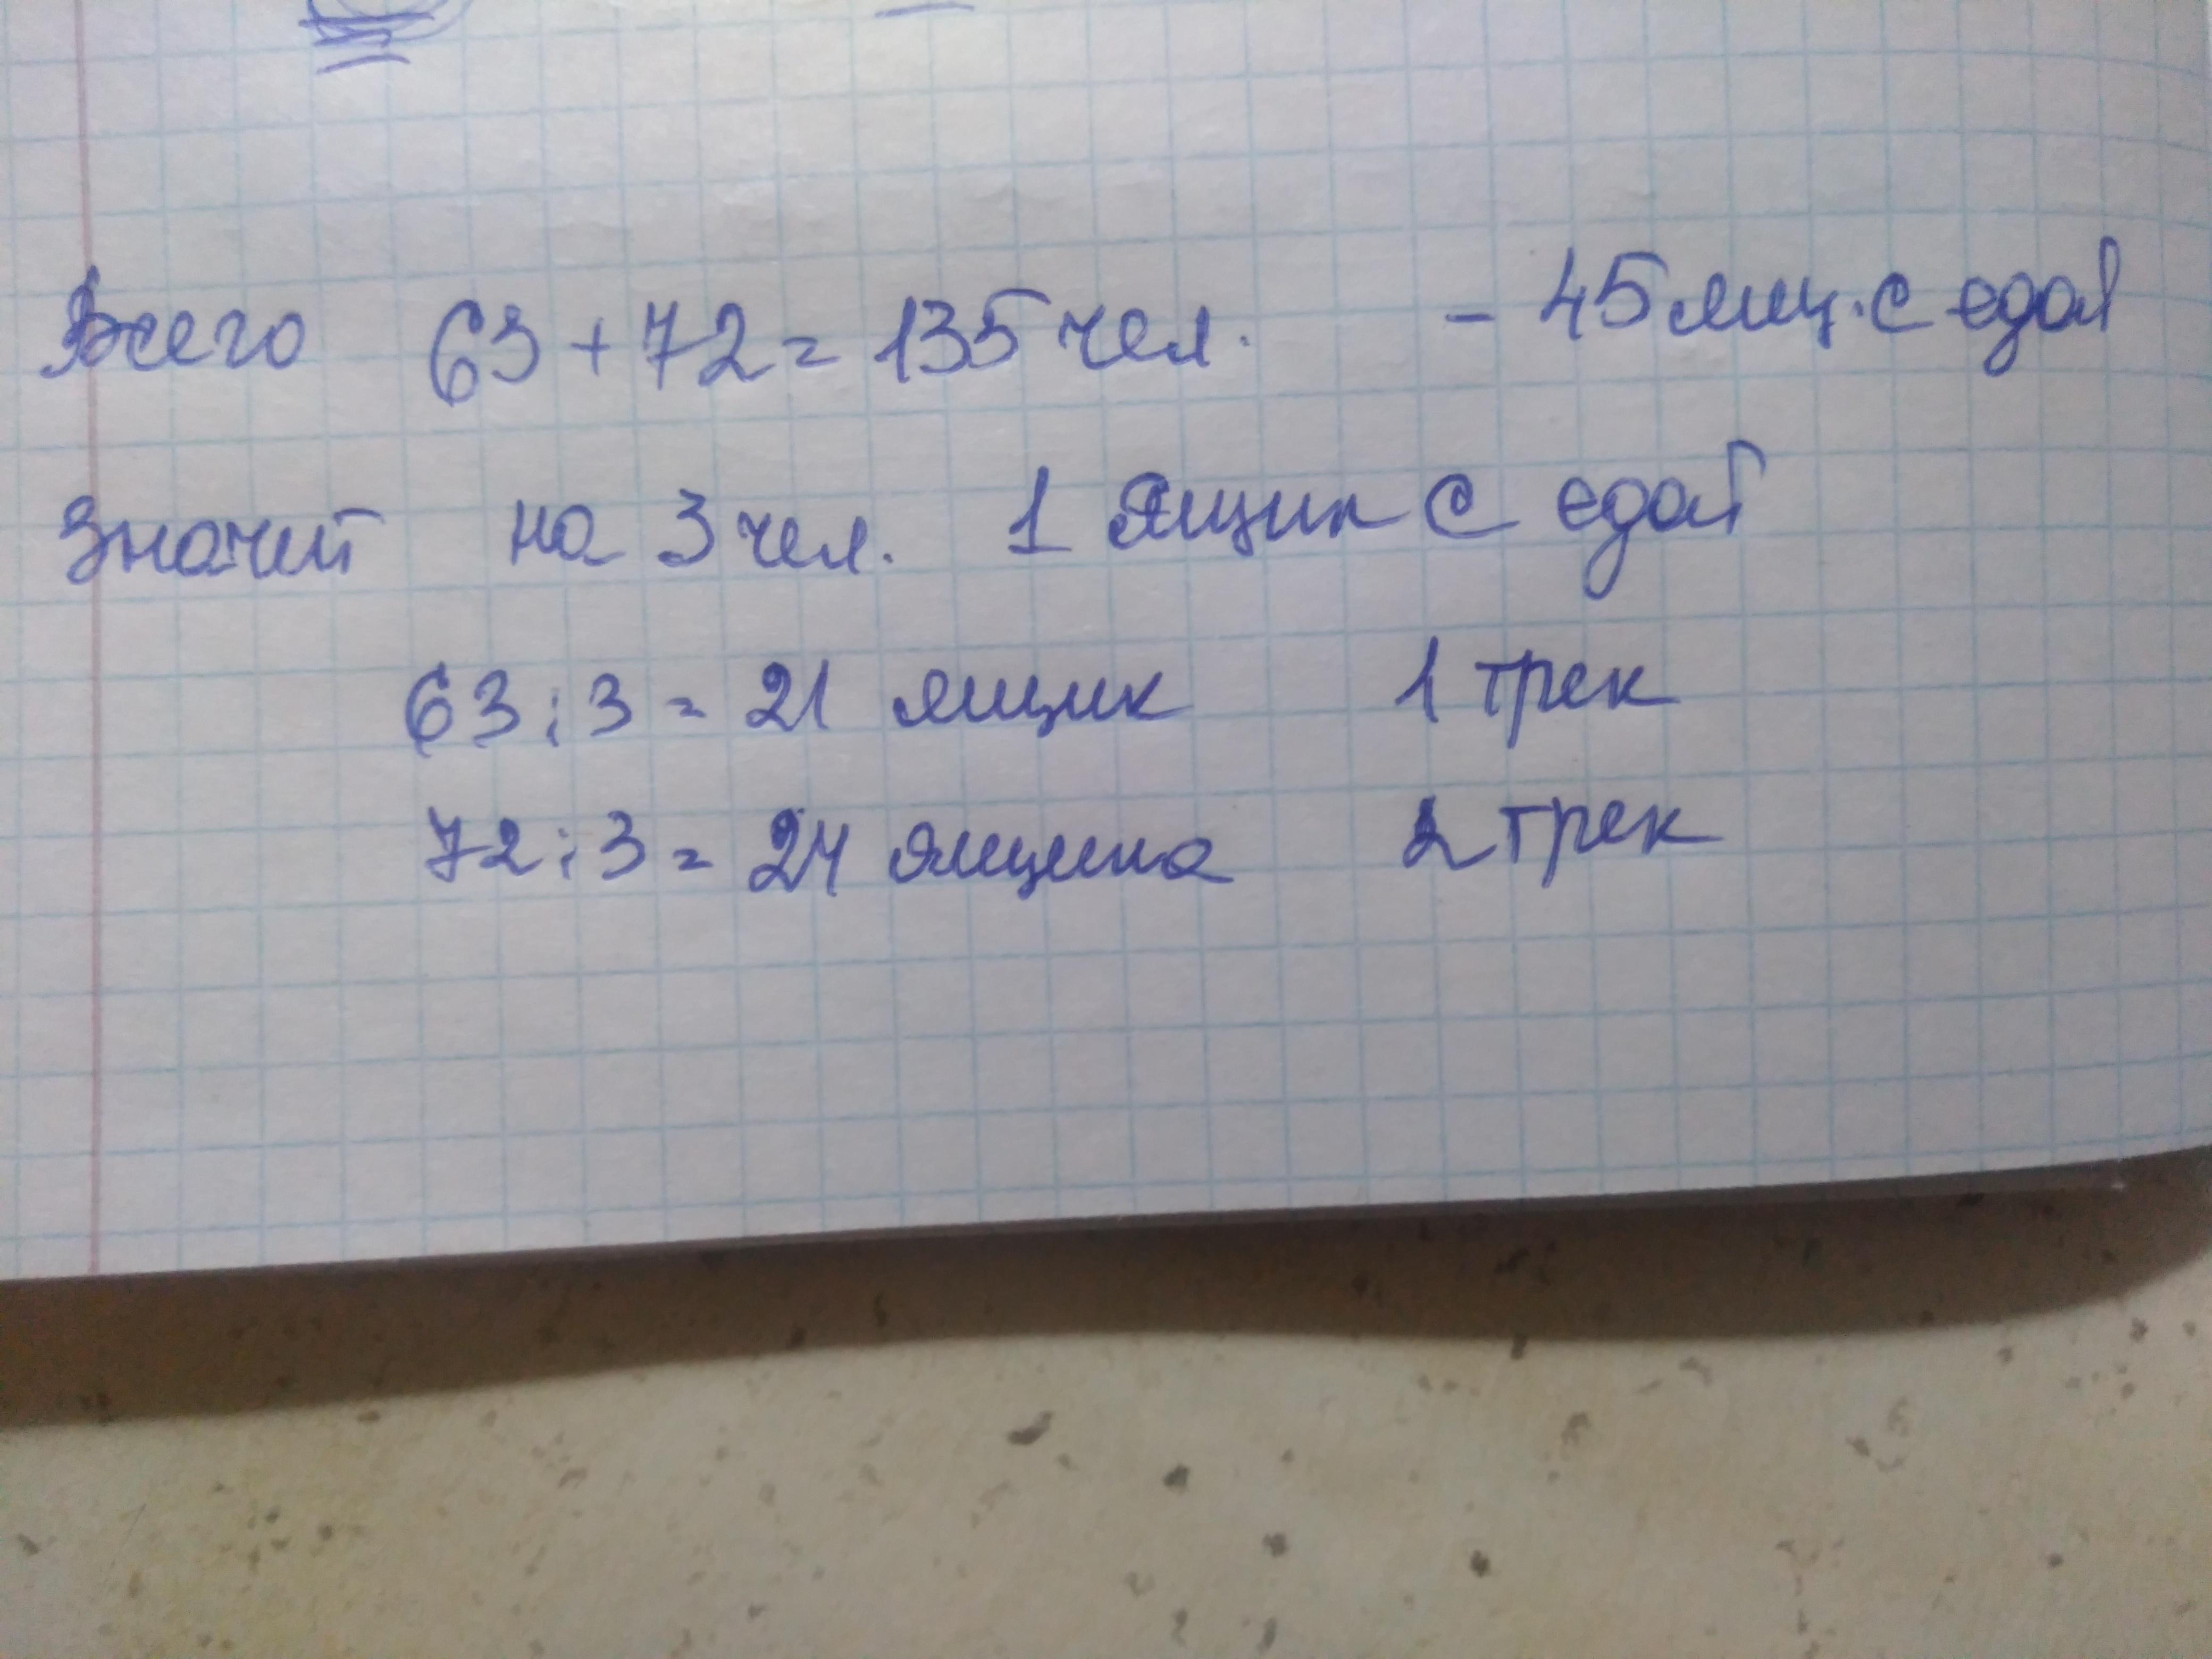 Всего 63 + 72 = 135 чел. - 45 ящ. с едой
Значит на 3 чел. 1 ящик с едой
63 : 3 = 21 ящик 1 трек
72 : 3 = 24 ящика 2 трек